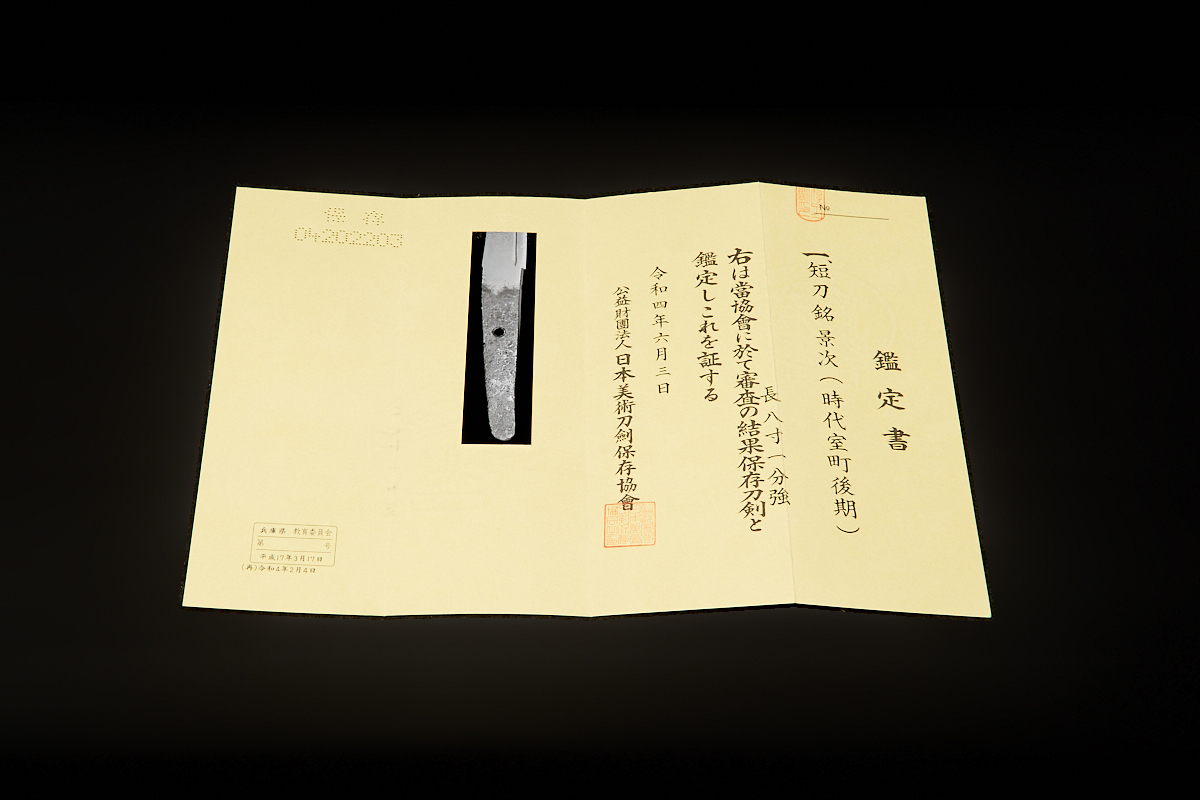 鑑定書
№
一、短刀 銘 景次(時代室町後期)
長 八寸一分強
右は當協會に於て審査の結果保存刀剣と
鑑定しこれを証する
令和四年六月三日
公益財團法人 日本美術刀劍保存協會
保存
04202203
兵庫県 教育委員会
第 号
平成17年3月17日
(再)令和4年2月4日